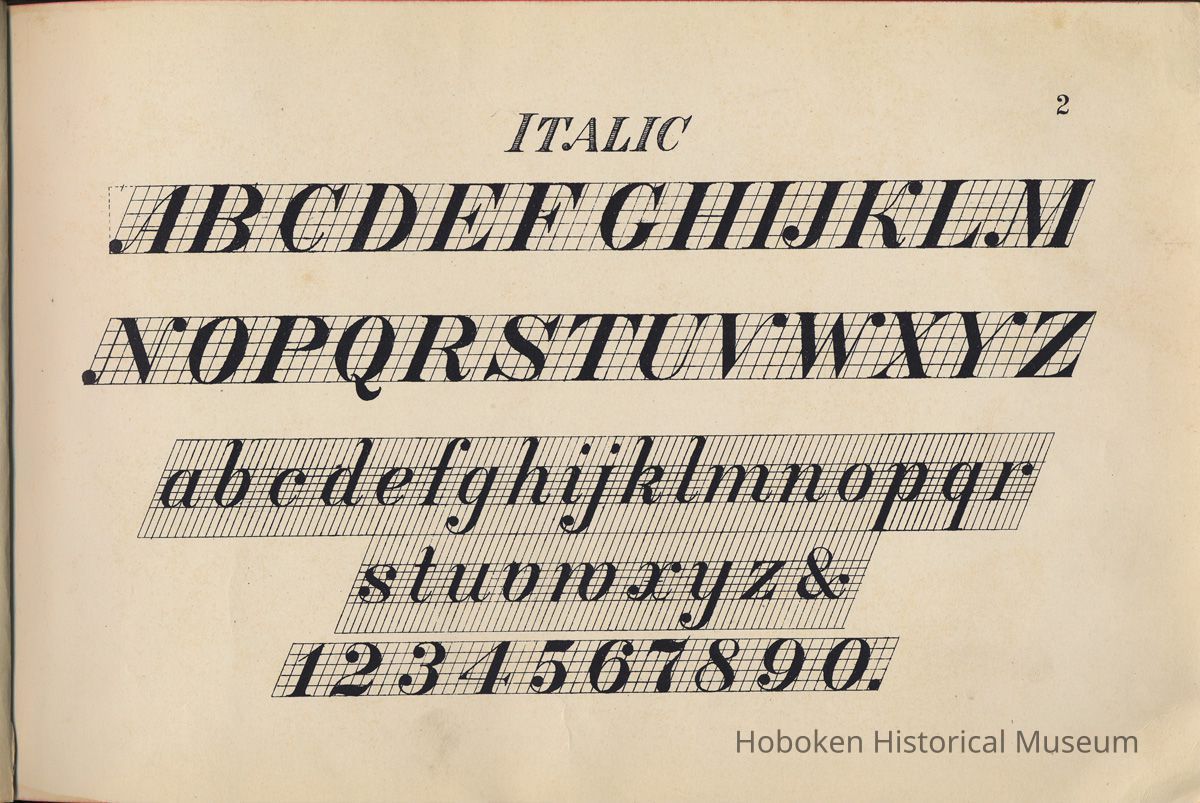 2
ITALIC
ABCDEFGHIJKLM
NOPQRSTUVWXYZ
abcdefghijklmnopqr
stuvwxyz&
1234567890.
Hoboken Historical Museum